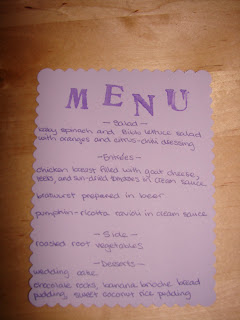 MENU
- Salad -
baby spinach and Bibb lettuce salad
with oranges and citrus-chili dressing
- Entrées -
chicken breast filled with goat cheese,
and sun-dried tomatoes in cream sauce
bratwurst prepared in beer
pumpkin-ricotta ravioli in cream sauce
- Side -
roasted root vegetables
- Desserts -
wedding cake
chocolate rocks, banana brioche bread
pudding, sweet coconut rice pudding